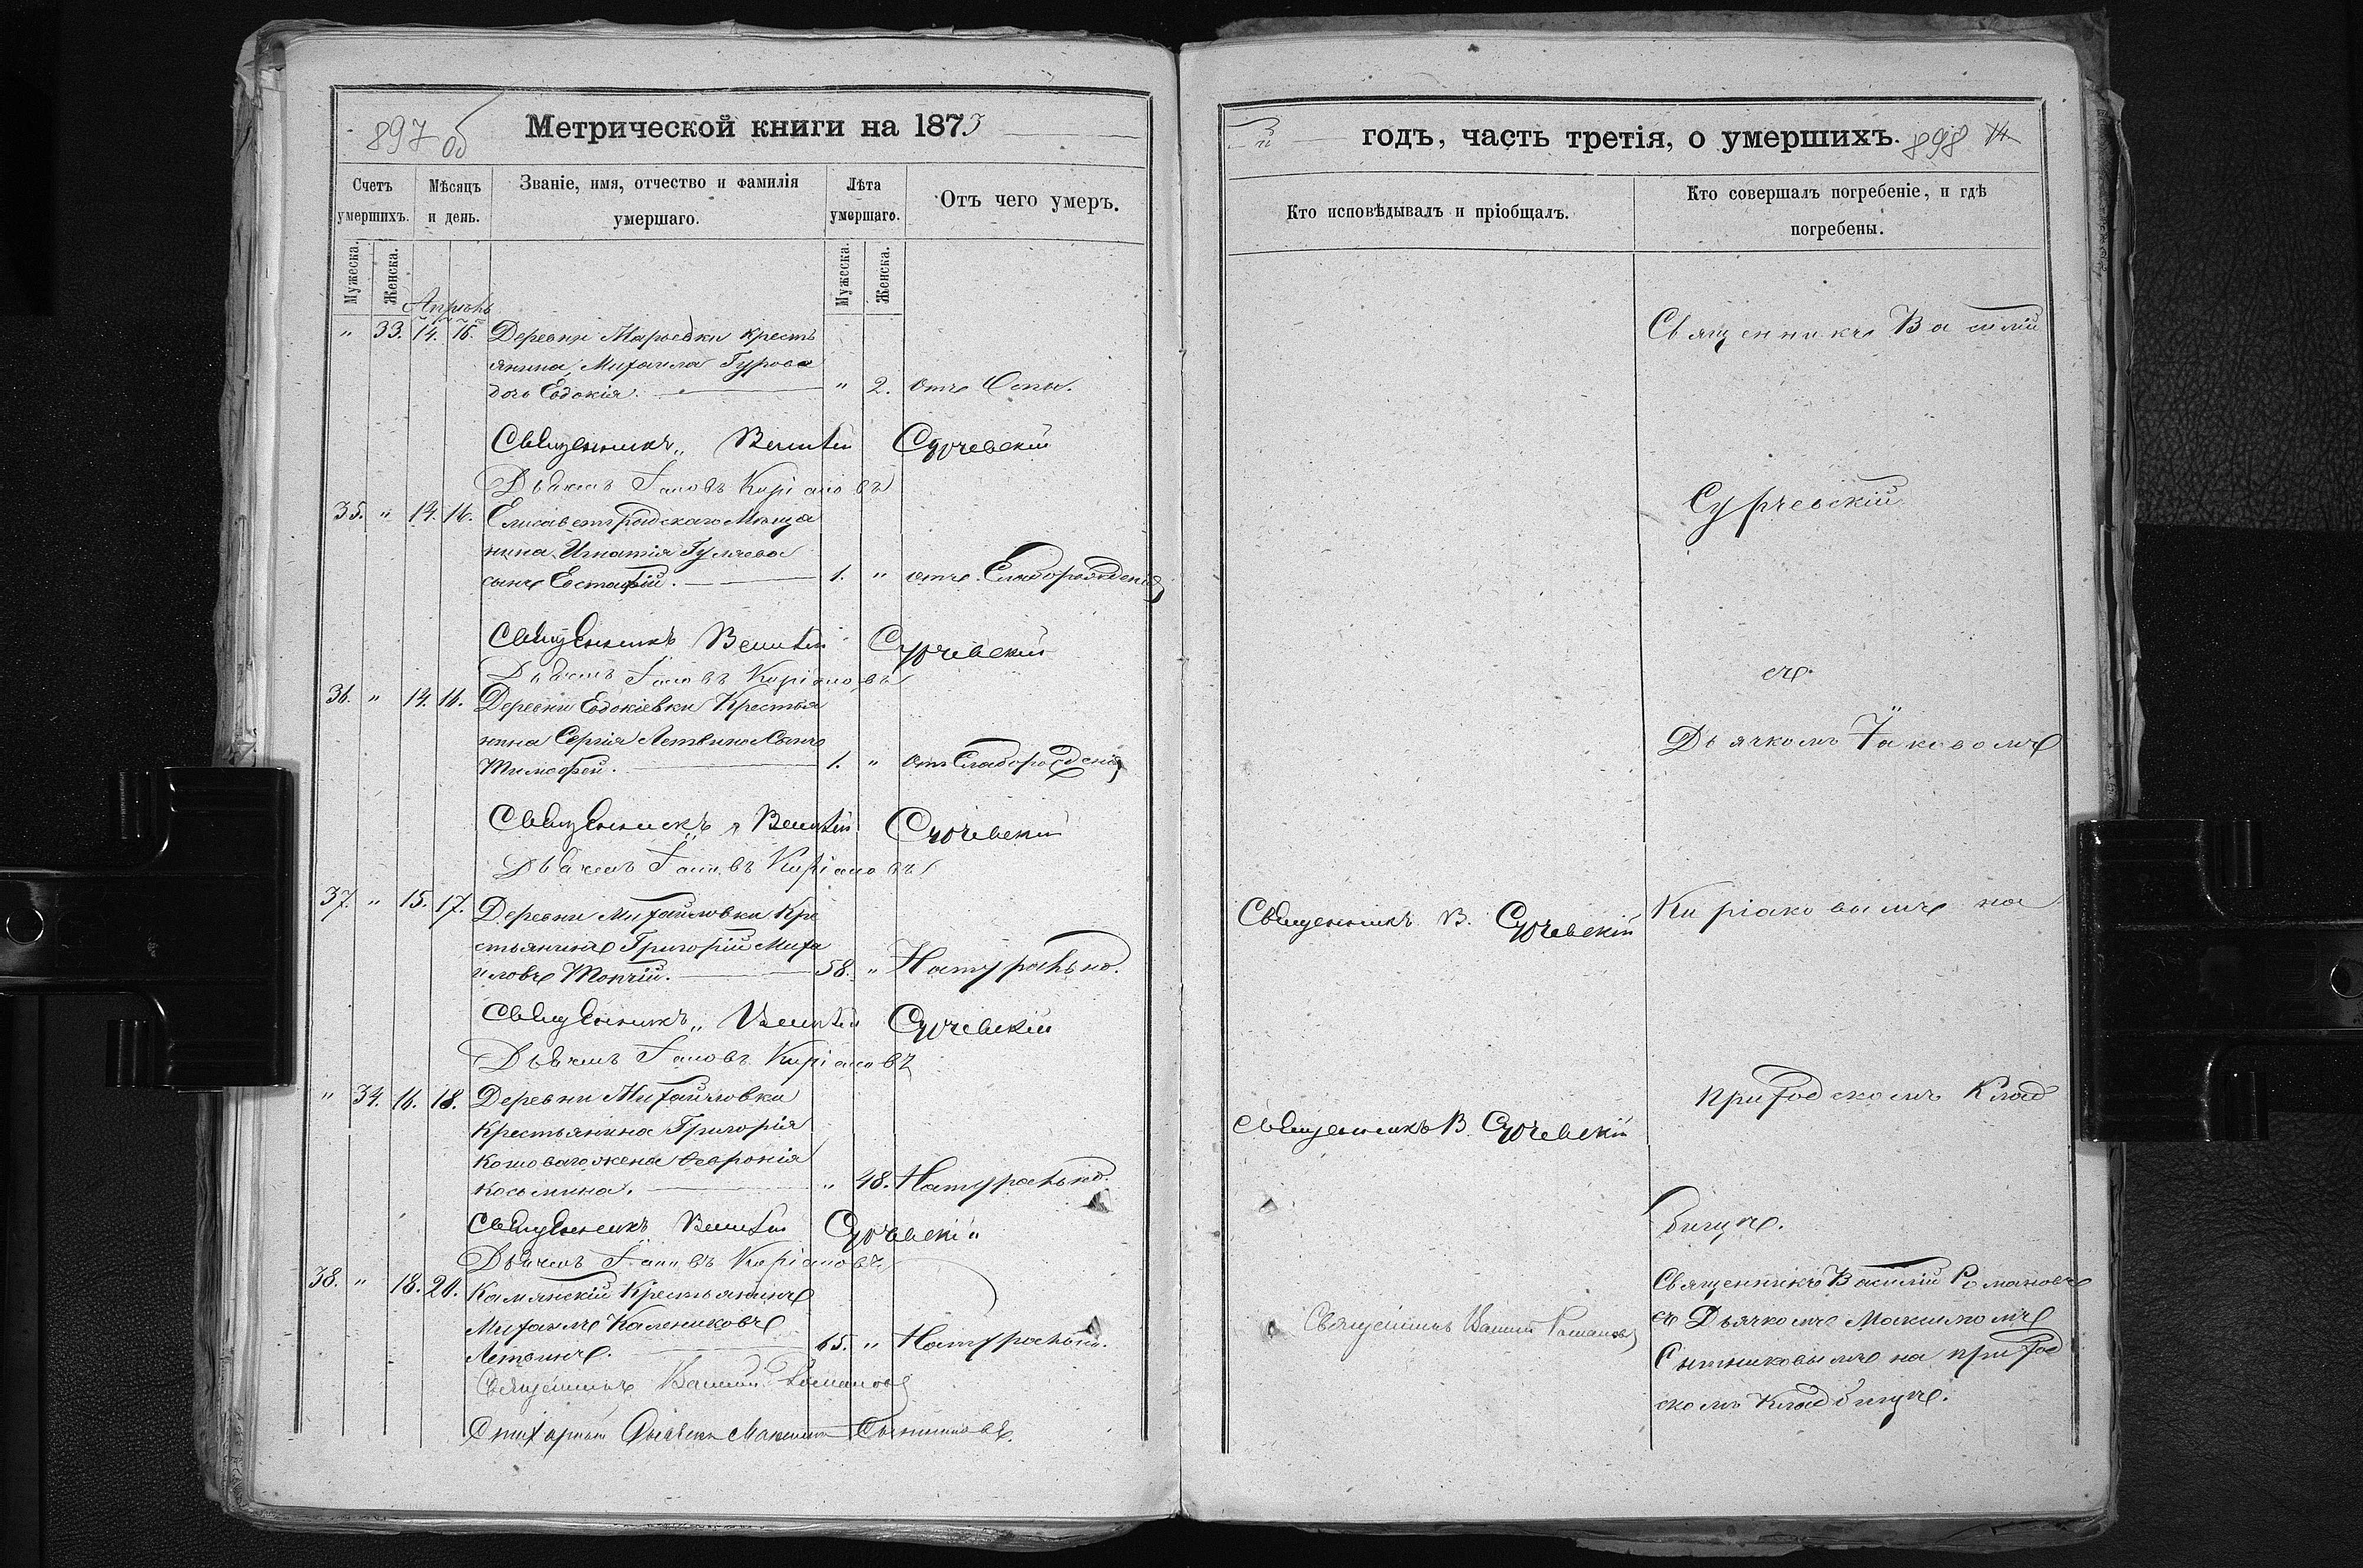 897 об
Метрической книги на 1873
Счетъ умершихъ.
Мѣсяцъ и день.
Званіе, имя, отчество и фамилія умершаго.
Лѣта умершаго.
Отъ чего умеръ.
Мужеска.
Женска.
Мужеска.
Женска.
Апрѣль
" 33. 14. 16. Деревни Марьевки кресть
янина Михаила Гурова
дочь Евдокія. " 2. отъ Оспы.
Священникъ Василій Сурчевскій
Дьячекъ Іаковъ Киріаковъ
35. " 14. 16. Елисаветградскаго Мѣща
нина Игнатія Гуляева
сынъ Евстафій. 1. " отъ Слаборожденія
Священникъ Василій Сурчевскій
Дьячекъ Іаковъ Киріаковъ
36. " 14. 16. Деревни Евдокіевки Крестья
нина Сергія Летвина Сынъ
Тимофей. 1. " отъ Слаборожденія
Священникъ Василій Сурчевскій
Дьячекъ Іаковъ Киріаковъ
37. " 15. 17. Деревни Михайловки Кре
стьянинъ Григорій Миха
иловъ Топчій. 58. " Натурально.
Священникъ Василій Сурчевскій
Дьячекъ Іаковъ Киріаковъ
" 34. 16. 18. Деревни Михайловки
Крестьянина Григорія
жена Февронія
Косьмина. " 48. Натурально.
Священникъ Василій Сурчевскій
Дьячекъ Іаковъ Киріаковъ
38. " 18. 20. Камянскій Крестьянинъ
Михаилъ Калениковъ
Летвинъ. 65. " Натурально.
Священникъ Василій Романовъ
Стихарный Дьячекъ Максимъ Сытниковъ.
й годъ, часть третія, о умершихъ.
898
Кто исповѣдывалъ и пріобщалъ.
Кто совершалъ погребеніе, и гдѣ погребены.
Священникъ Василій
Сурчевскій
съ
Дьячкомъ Іаковомъ
Священникъ В. Сурчевскій
Киріаковымъ на
приходскомъ Клад
Священникъ В. Сурчевскій
бищѣ.
Священникъ Василій Романовъ
Священникъ Василій Романовъ
съ Дьячкомъ Максимомъ
Сытниковымъ на приход
скомъ Кладбищѣ.